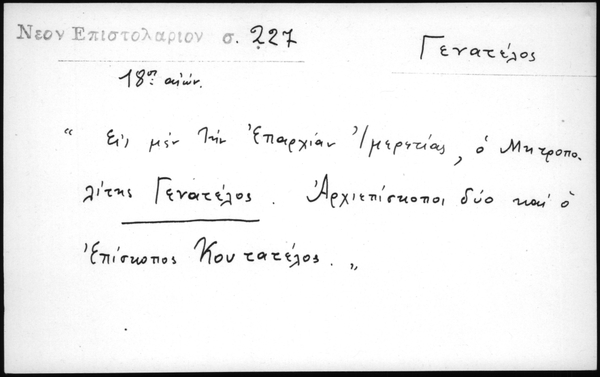 Νεον Επιστολαριον σ. 227
Γενατέλος
18ος αιών.
"Εἰς μέν τήν Ἐπαρχίαν Ἰμερετίας, ὁ Μητροπο-
λίτης Γενατέλος. Ἀρχιεπίσκοποι δύο καί ὁ
Ἐπίσκοπος Κουτατέλος."